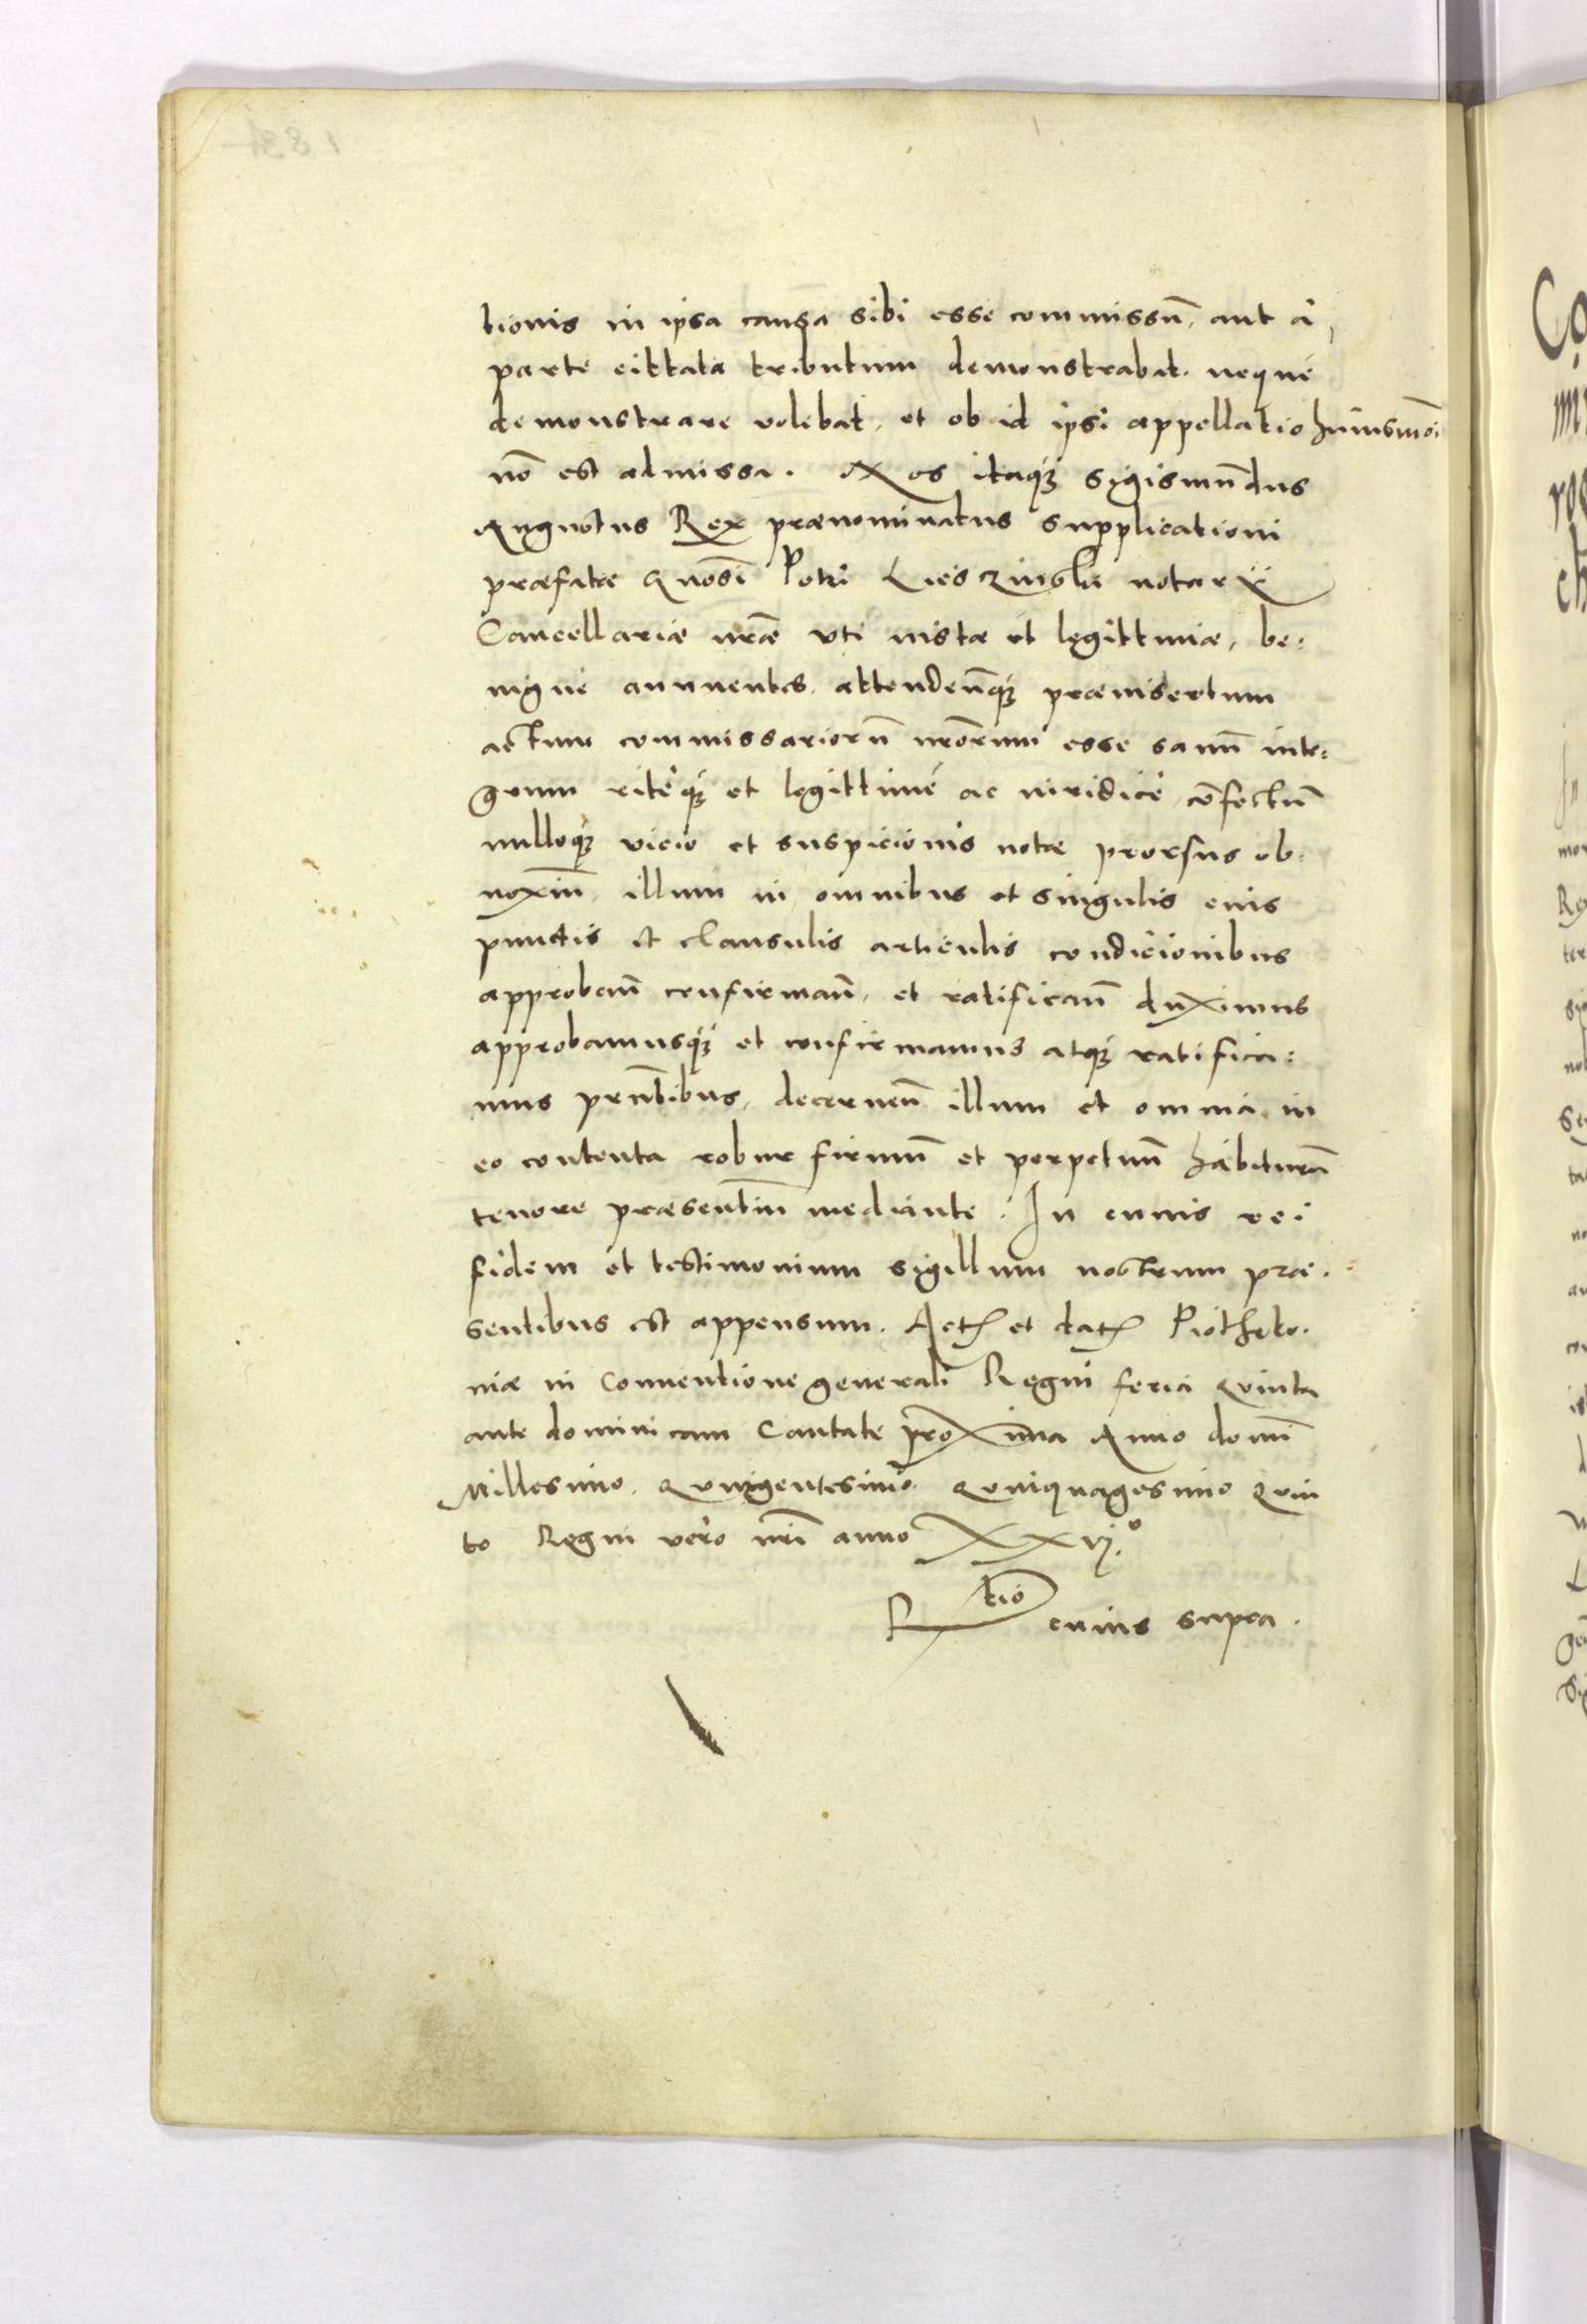 tionis in ipsa causa sibi esse commissũ, aut à
parte cittata tributum demonstrabat. neque
demonstrare volebat, et ob id ipsi appellatio huiusmõi
nõ est admissa. Nos itaq₃ Sigismũdus
Augustus Rex prænominatus supplicationi
præfatæ gnosi Petri notarÿ
Cancellariæ nr̃æ vti iustæ et legittimæ, be:
nigne annuentes, attenden̄q₃ præinsertum
actum commissariorũ nr̃orum esse sanũ inte:
grum ritèq₃ et legittimè ac iuridicè cõfectũ
nulloq₃ vicio et suspicionis notæ prorsus ob:
noxiũ, illum in omnibus et singulis eius
punctis et clausulis articulis condicionibus
approban̄ confirman̄, et ratifican̄ duximus
approbamusq₃ et confirmamus atq₃ ratifica:
mus prñtibus, decernen̄ illum et omnia in
eo contenta robur firmũ et perpetuũ habiturũ
tenore præsentiũ mediante. In cuius rei
fidem et testimonium sigillum nostrum præ:
sentibus est appensum. Act̃ et dat̃ Piotrko:
niæ in Conuentione generali Regni feria quinta
ante dominicam Cantate proxima Anno domĩ
Millesimo. Quingentesimo Quinquagesimo Quin
to Regni vero nr̃i anno XXVI.º
R tio cuius supra.